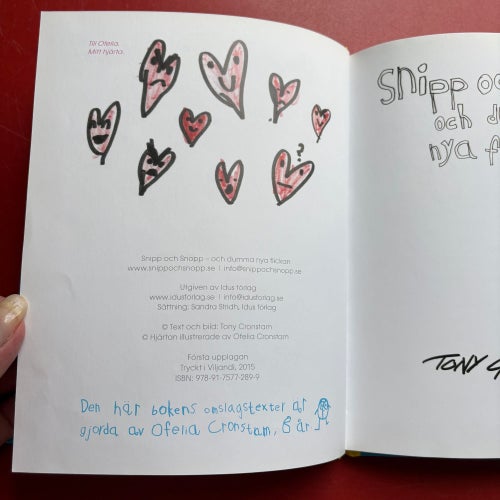 Till Ofelia.
Mitt hjärta.
?
Snipp och Snopp – och dumma nya flickan
www.snippochsnopp.se | info@snippochsnopp.se
Utgiven av Idus förlag
www.idusforlag.se | info@idusforlag.se
Sättning: Sandra Stridh, Idus förlag
© Text och bild: Tony Cronstam
© Hjärtan illustrerade av Ofelia Cronstam
Första upplagan
Tryckt i Viljandi, 2015
ISBN: 978-91-7577-289-9
Den här bokens omslagstexter är
gjorda av Ofelia Cronstam, 6 år
Snipp oc
och du
nya f
TONY C